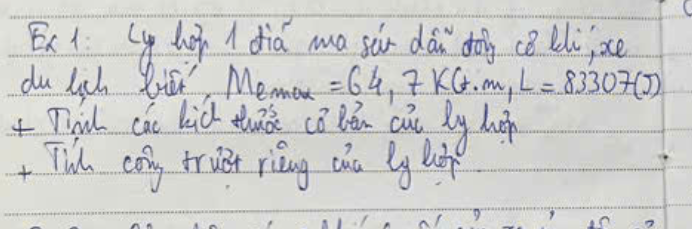 Ex 1: Ly hợp 1 đĩa ma sát dẫn động cơ khí, xe
du lịch biết, Memax = 64,7 KG.m, L = 83307(J)
+ Tính các kích thước cơ bản của ly hợp
+ Tính công trượt riêng của ly hợp.